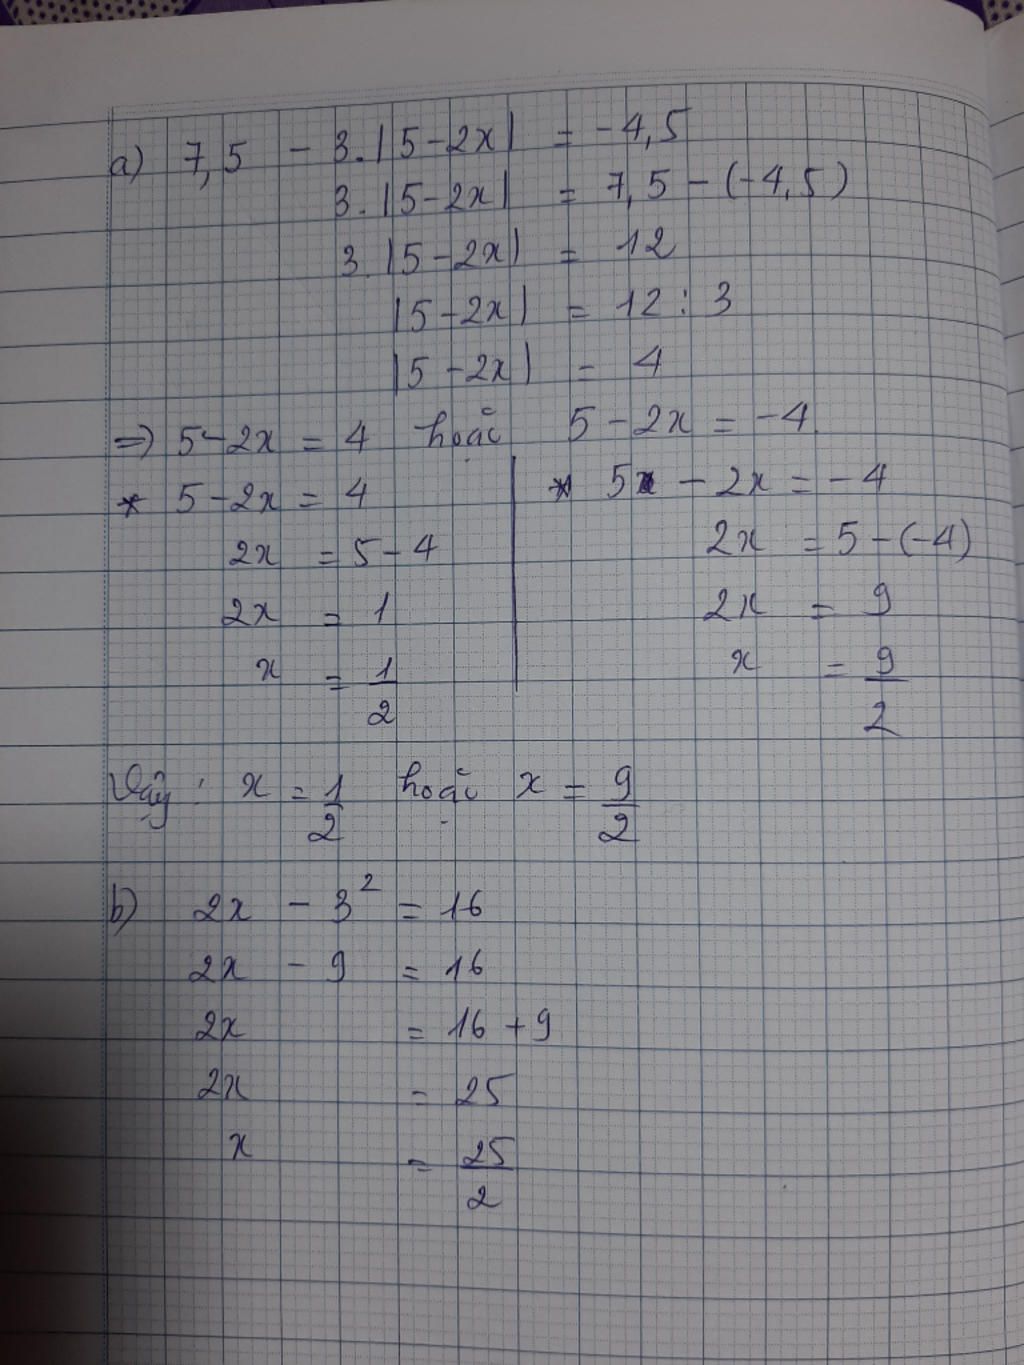 a) 7,5 - 3.|5-2x| = -4,5
3.|5-2x| = 7,5 - (-4,5)
3.|5-2x| = 12
|5-2x| = 12 : 3
|5-2x| = 4
=> 5-2x = 4 hoặc 5-2x = -4
* 5-2x = 4
2x = 5-4
2x = 1
x = 1/2
* 5 - 2x = -4
2x = 5-(-4)
2x = 9
x = 9/2
Vậy : x = 1/2 hoặc x = 9/2
b) 2x - 3² = 16
2x - 9 = 16
2x = 16 + 9
2x = 25
x = 25/2